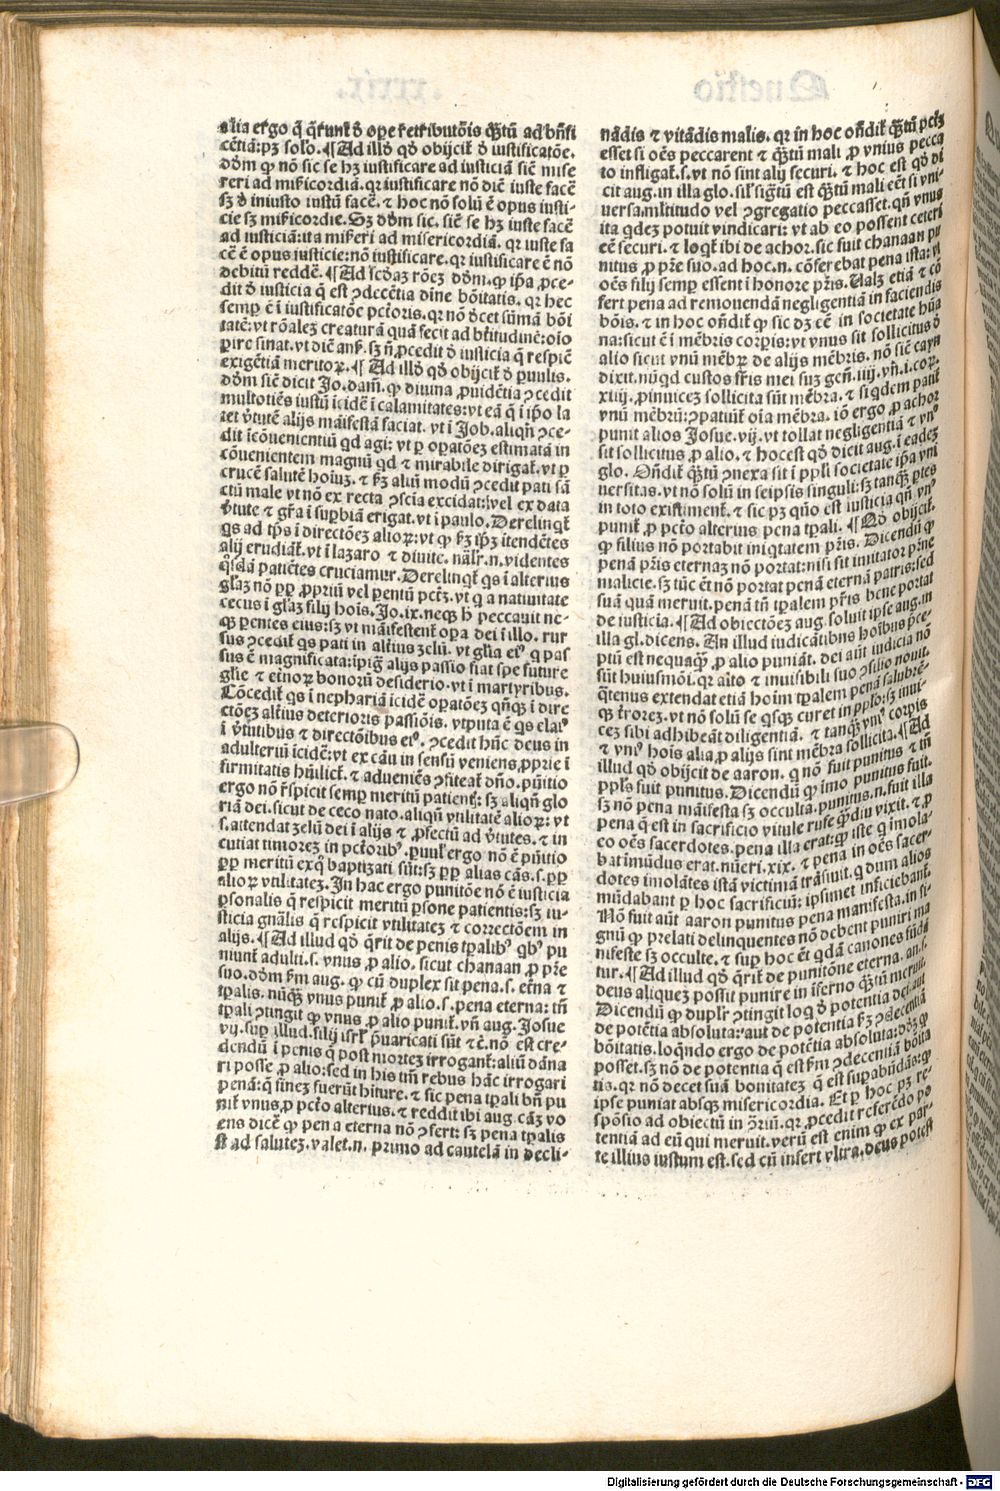 alia ergo q̃ q̃runt̃ d̓ oꝑe retributōis q̃ʒtũ ad bñfi
cētiã: pʒ solo. ¶ Ad illḋ qḋ obijcit̃ d̓ iustificatōe.
dōm ꝙ nō sic se hʒ iustificare ad iusticiã sic̃ mise
reri ad mĩcordiã. qr iustificare nō dic̃ iuste facē
sʒ d̓ iniusto iustũ facē. ⁊ hoc nō solũ ē opus iusti-
cie sʒ mĩcordie. Sʒ dōm sic. sic̃ se hʒ iuste facē
ad iusticiã: ita miẽri ad misericordiã. qr iuste fa
cē ē opus iusticie: nō iustificare. qr iustificare ē nō
debitũ reddē. ¶ Ad scḋaʒ rōeʒ dōm. ꝙ ip̃a ꝓce-
dit d̓ iusticia q̃ est ꝯdecētia diñe bōitatis. qr hec
semꝑ ē ĩ iustificatōe pctōris. qr nō dc̓et sũmã bōi
tatē: vt rōaleʒ creaturã quã fecit ad btĩtudinē: oĩo
ꝑire sinat. vt dic̃ ans̃. sʒ ñ ꝓcedit d̓ iusticia q̃ respic̃
exigētiã meritoꝝ. ¶ Ad illḋ qḋ obijcit̃ d̓ puulis.
dōm sic̃ dicit Jo. dam̃. ꝙ diuina ꝓuidētia ꝯcedit
multotiēs iustũ ĩcidē ĩ calamitates: vt eã q̃ ĩ ip̃o la
tet ṽtutē alijs mãifestã faciat. vt ĩ Job. aliqñ ꝯce-
dit ĩcōueniētiũ qd agi: vt ꝑ oꝑatōeʒ estimatã in
cōuenientem magnũ qd ⁊ mirabile dirigat̃. vt ꝑ
crucē salutē hoĩuʒ. ⁊ ẽʒ aliũ modũ ꝯcedit pati sã
ctũ male vt nō ex recta ꝯscia excidat: vel ex data
ṽtute ⁊ gr̃a ĩ suꝑbiã erigat. vt ĩ paulo. Derelinqt̃
qs ad tp̃s ĩ directōeʒ alioꝝ: vt ꝙ ẽʒ ip̃ʒ itendētes
alij erudiãt̃. vt ĩ lazaro ⁊ diuite. nãlr̃. n. videntes
qsdã patiētes cruciamur. Derelinqt̃ qs ĩ alterius
gl̃aʒ nō ꝑꝑ ꝓpriũ vel parentũ pctʒ. vt q a natiuitate
cecus ĩ gl̃aʒ filij hoĩs. Jo. ix. neqʒ h̓ peccauit ne-
qʒ ꝑentes eius: sʒ vt mãifestent̃ oꝑa dei ĩ illo. rur
sus ꝯcedit̃ qs pati in altĩus ʒelũ. vt gl̃ia eiꝰ q pas
sus ē magnificata: ĩpigr̃ alijs passio fiat spe future
gl̃ie ⁊ etnoꝝ bonorũ desiderio. vt ĩ martyribus.
Cōcedit̃ qs ĩ nephariã ĩcidē oꝑatōeʒ qñqʒ ĩ dire
ctōeʒ altĩus deterioris passiōis. vtputa ē qs elatꝰ
ĩ ṽtutibus ⁊ directōibus eiꝰ. ꝯcedit hũc deus in
adulteriũ ĩcidē: vt ex cãu in sensũ veniens ꝓprie ĩ
firmitatis hũiliet̃. ⁊ adueniēs ꝯfiteat̃ dño. pũitio
ergo nō r̃spicit semꝑ meritũ patient̃: sʒ aliqñ glo
riã dei. sicut de ceco nato. aliqñ vtilitatē alioꝝ: vt
s. attendat ʒelũ dei ĩ alijs ⁊ ꝓfectũ ad ṽtutes. ⁊ in
cutiat timoreʒ in pctoribꝰ. puul̓ ergo nō ē pũitio
ꝑꝑ meritũ exqͦ baptizati sũt: sʒ ꝑꝑ alias cãs. s. ꝑꝑ
alioꝝ vtilitateʒ. In hac ergo punitōe nō ē iusticia
ꝑsonalis q̃ respicit meritũ ꝑsone patientis: sʒ iu-
sticia gñalis q̃ respicit vtilitateʒ ⁊ correctōem in
alijs. ¶ Ad illud qḋ q̃rit de penis tp̃alibꝰ qbꝰ pu
niunt̃ adulti. s. vnus ꝓ alio. sicut chanaan ꝓ pr̃e
suo. dōm ẽm aug. ꝙ cũ duplex sit pena. s. et̃na ⁊
tp̃alis. nũqʒ vnus punit̃ ꝓ alio. s. pena eterna: tñ
tp̃ali ꝯtingit ꝙ vnus ꝓ alio punit̃. vñ aug. Josue
vij. suꝑ illud. filij isrl̃ p̃uaricati sũt ⁊c̃. nō est cre-
dendũ ĩ penis q̃ post morteʒ irrogant̃: aliũ dãna
ri posse ꝓ alio: sed in his tm̃ rebus hãc irrogari
penã: q̃ fineʒ fuerũt hiture. ⁊ sic pena tp̃ali bñ pu
nit̃ vnus ꝓ pctō alterius. ⁊ reddit ibi aug. cãʒ vo
ens dicē ꝙ pena eterna nō ꝯfert: sʒ pena tp̃alis
st̃ ad saluteʒ. valet. n. primo ad cautelã in decli-
nãdis ⁊ vitãdis malis. qr in hoc oñdit̃ q̃ʒtũ pctʒ
esset si oēs peccarent ⁊ q̃ʒtũ mali ꝓ vnius pecca
to infligat̃. s. vt nō sint alij securi. ⁊ hoc est qḋ di
cit aug. in illa glo. sil̓ sigr̃tũ est q̃ʒtũ mali eēt si vni
uersa. mltitudo vel ꝯgregatio peccasset. qñ vnus
ita qdeʒ potuit vindicari: vt ab eo possent ceteri
eē securi. ⁊ loqt̃ ibi de achor. sic fuit chanaan pu
nitus ꝓ pr̃e suo. ad hoc. n. cōferebat pena ista: vt
oēs filij semꝑ essent ĩ honore pr̃is. Ualʒ etiã ⁊ cō
fert pena ad remouendã negligentiã in faciendis
bōis. ⁊ in hoc oñdit̃ ꝙ sic dʒ eē in societate hũa
na: sicut ē ĩ mēbris corpis: vt vnus sit sollicitus d̓
alio sicut vnũ mēbꝝ de alijs mēbris. nō sic̃ cayn
dixit. nũqd custos fr̃is mei suʒ gen̄. iiij. vñ. i. coꝝ.
xiij. ꝓinuiceʒ sollicita sũt mēbra. ⁊ si qdem patit̃
vnũ mēbrũ: ꝯpatiunt̃ oĩa mēbra. iō ergo ꝓ achor
punit alios Josue. vij. vt tollat negligentiã ⁊ vnꝰ
sit sollicitus ꝓ alio. ⁊ hocest qḋ dicit aug. ĩ eadeʒ
glo. Oñdit̃ q̃ʒtũ ꝯnexa sit ĩ ppl̃i societate ip̃a vni
uersitas. vt nō solũ in seipsis singuli: sʒ tanqʒ ꝑtes
in toto existiment̃. ⁊ sic pʒ qñō est iusticia qñ vnꝰ
punit̃ ꝓ pctō alterius pena tp̃ali. ¶ Qḋ obijcit̃
ꝙ filius nō portabit iniqtatem pr̃is. Dicendũ ꝙ
penã pr̃is eternaʒ nō portat: nisi sit imitator pr̃ne
malicie. sʒ tũc ēt nō portat penã eternã patris: sed
suã quã meruit. penã tñ tp̃alem pr̃is bene portat
de iusticia. ¶ Ad obiectōeʒ aug. soluit ipse aug. in
illa gl. dicens. An illud iudicãtibus hoĩbus p̃ce-
ptũ est nequaqʒ ꝓ alio puniãt. dei aũt iudicia nō
sũt huiusmōi. qr alto ⁊ inuisibili suo ꝯsilio nouit.
q̃tenus extendat etiã hoĩm tp̃alem penã salubrē-
qʒ t̃roreʒ. vt nō solũ se qsqʒ curet in ppl̃o: sʒ inui-
ceʒ sibi adhibeãt diligentiã. ⁊ tanqʒ vniꝰ corpis
⁊ vniꝰ hoĩs alia ꝓ alijs sint mēbra sollicita. ¶ Ad
illud qḋ obijcit de aaron. q nō fuit punitus ⁊ tñ
ppl̃s fuit punitus. Dicendũ ꝙ imo punitus fuit.
sʒ nō pena mãifesta sʒ occulta. punitus. n. fuit illa
pena q̃ est in sacrificio vitule rufe q̃diu vixit. ⁊ ꝓ
eo oēs sacerdotes. pena illa erat: qr iste q imola-
bat ĩmũdus erat. nũeri. xix. ⁊ pena in oēs sacer-
dotes imolãtes istã victimã trãsiuit. q dum alios
mũdabant ꝑ hoc sacrificiũ: ipsimet inficiebant̃.
Nō fuit aũt aaron punitus pena manifesta. in si-
gnũ ꝙ prelati delinquentes nō debent puniri ma
nifeste sʒ occulte. ⁊ suꝑ hoc ēt qdã canones fũdã
tur. ¶ Ad illud qḋ q̃rit̃ de punitōne eterna. an. s.
deus alique̓ʒ possit punire in ĩferno q̃ʒtũ meruit.
Dicendũ ꝙ duplr̃ ꝯtingit loq d̓ potentia dei. aut
de potētia absoluta: aut de potentia ẽʒ ꝯdecentiã
bōitatis. loqñdo ergo de potētia absoluta: dōʒ ꝙ
posset. sʒ nō de potentia q̃ est ẽm ꝯdecentiã bōita
tis. qr nō decet suã bonitateʒ q̃ est suꝑabũdãs: ꝙ
ipse puniat absqʒ misericordia. Et ꝑ hoc pʒ re-
spōsio ad obiectũ in ꝯriũ. qr ꝓcedit referēdo po
tentiã ad eũ qui meruit. verũ est enim ꝙ ex par-
te illius iustum est. sed cũ infert vltra. deus potest
Digitalisierung gefördert durch die Deutsche Forschungsgemeinschaft - DFG